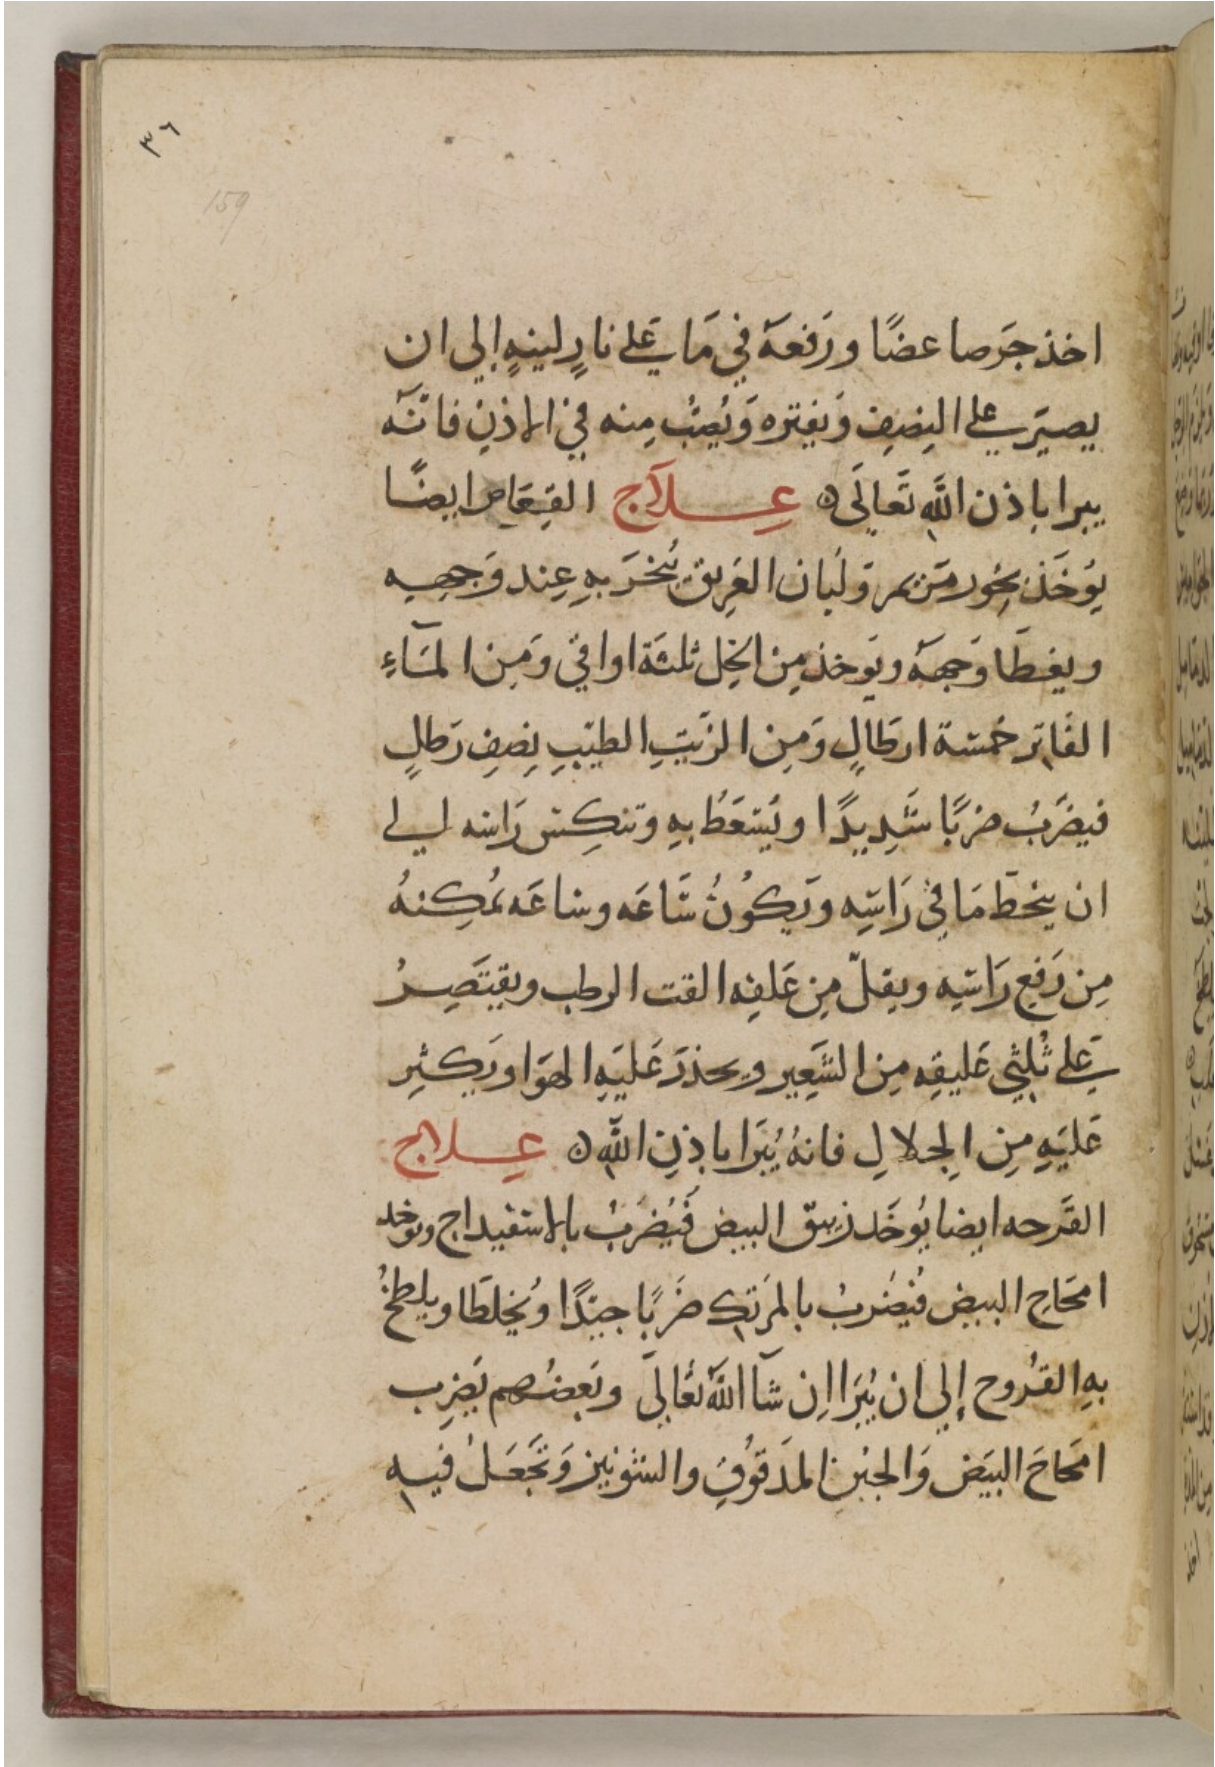 ٣٦
159
اخذ جَرصا عضًا ورَفعهَ في مَا يے عَلي نارٍ لينهٍ إلي ان
يصيَر علي النِصِفِ وَيفتره وَيُصَبُ مِنه في الاذنِ فانّهَ
يبرا باذن اللَّه تَعالَى ه عِــلَاج القِعَاص ايضًا
يوُخَذ بخور مَن مر وَلبَان العَرِيق يُبخرَ بهِ عِند وَجهِه
ويغطَا وَجهَهَ ويَوخذ مِن الخِل ثلثَة اواقي وَمِن المآءِ
الفَاتِر خمسَة ارطالٍ وَمِن الزَيتِ الطيّبِ نِصِفِ رَطلٍ
فيضَربُ ضربًا شَدِيدًا ويَسَعَطُ بهِ وتنكِس رَاسَه الے
ان يخطَ مَا في رَاسِه ويَكوُنُ سَاعَه وساعَه يُمكِنهُ
مِن رَفِع رَاسِه ويقلّ مِن عَلفِه القت الرطب ويقتَصِرُ
عَلي ثُلثي عَليقِه مِن الشَعِير ويحذرَ عَليَهِ الهوَا ويَكثِر
عَليَهِ مِن الِجلالِ فانهُ يُبَرا باذِنِ اللَّه ه عِـلاج
القَرحه ايضا يُوخَذ زيبق البيض فَيُضرَبُ بالاسفيداج ويوخذ
امحَاحِ البيض فُيضَربُ بالمَرتك ضَربًا جيَدًا ويُخلطَا ويلطخُ
بهِ القرُوح إلي ان يُبَرا اِن شَآ اللَّه تعَالَي وبَعضُهم يَضرِب
امَحاحَ البيَض وَالجبُنِ المدَقوُقِ والشونيز وَتجَعَلُ فيهِ